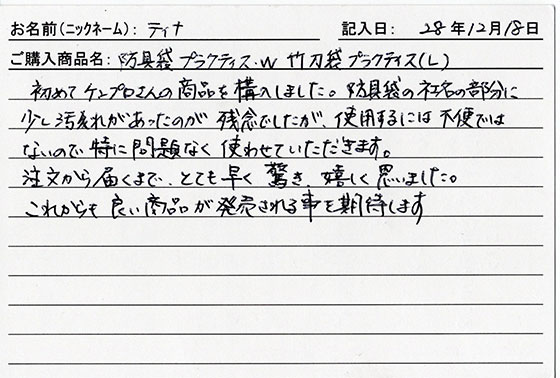 お名前(ニックネーム): ティナ 記入日: 28年12月18日
ご購入商品名: 防具袋プラクティス・W 竹刀袋プラクティス(L)
初めてケンプロさんの商品を構入しました。防具袋の社名の部分に
少し汚れがあったのが残念でしたが、使用するには不便では
ないので特に問題なく使わせていただきます。
注文から届くまで、とても早く驚き、嬉しく思いました。
これからも良い商品が発売される事を期待します